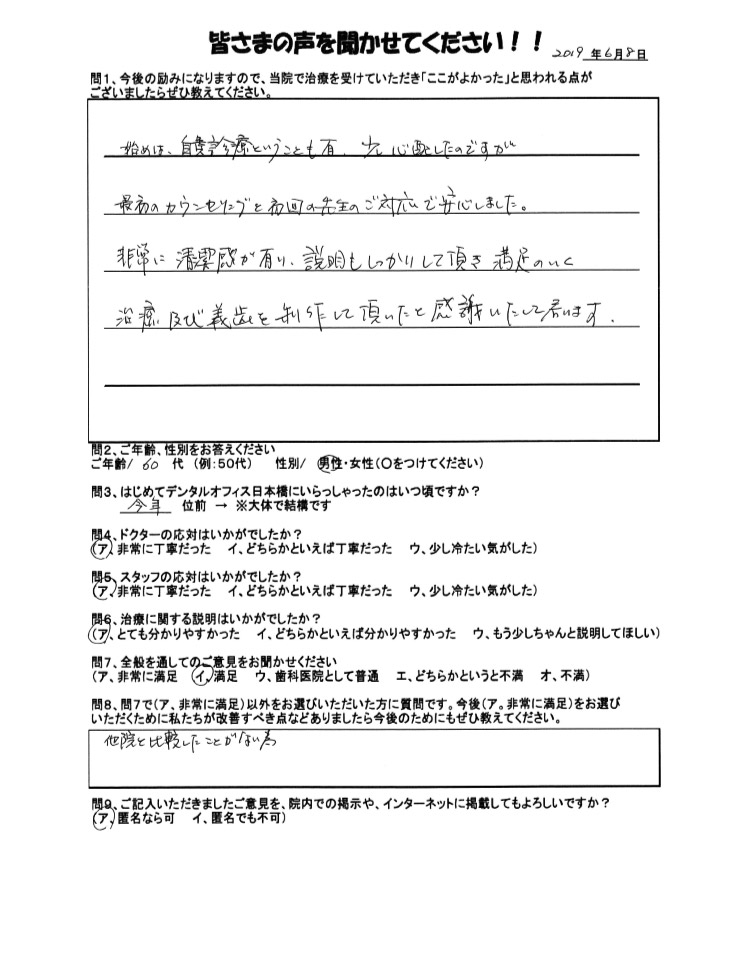 皆さまの声を聞かせてください！！ 2019 年6月8日
問1、今後の励みになりますので、当院で治療を受けていただき「ここがよかった」と思われる点が
ございましたらぜひ教えてください。
始めは、自費診療ということも有、少し心配したのですが
最初のカウンセリングと初回の先生のご対応で安心しました。
非常に清潔感が有り、説明もしっかりして頂き満足のいく
治療及び義歯を制作して頂いたと感謝いたして居ります.
問2、ご年齢、性別をお答えください
ご年齢/ 60 代 （例：50代） 性別/ 男性・女性（〇をつけてください）
問3、はじめてデンタルオフィス日本橋にいらっしゃったのはいつ頃ですか？
今年 位前 → ※大体で結構です
問4、ドクターの応対はいかがでしたか？
（ア、非常に丁寧だった イ、どちらかといえば丁寧だった ウ、少し冷たい気がした）
問5、スタッフの応対はいかがでしたか？
（ア、非常に丁寧だった イ、どちらかといえば丁寧だった ウ、少し冷たい気がした）
問6、治療に関する説明はいかがでしたか？
（ア、とても分かりやすかった イ、どちらかといえば分かりやすかった ウ、もう少しちゃんと説明してほしい）
問7、全般を通してのご意見をお聞かせください
（ア、非常に満足 イ、満足 ウ、歯科医院として普通 エ、どちらかというと不満 オ、不満）
問8、問7で（ア、非常に満足）以外をお選びいただいた方に質問です。今後（ア。非常に満足）をお選び
いただくために私たちが改善すべき点などありましたら今後のためにもぜひ教えてください。
他院と比較したことがない為
問9、ご記入いただきましたご意見を、院内での掲示や、インターネットに掲載してもよろしいですか？
（ア、匿名なら可 イ、匿名でも不可）